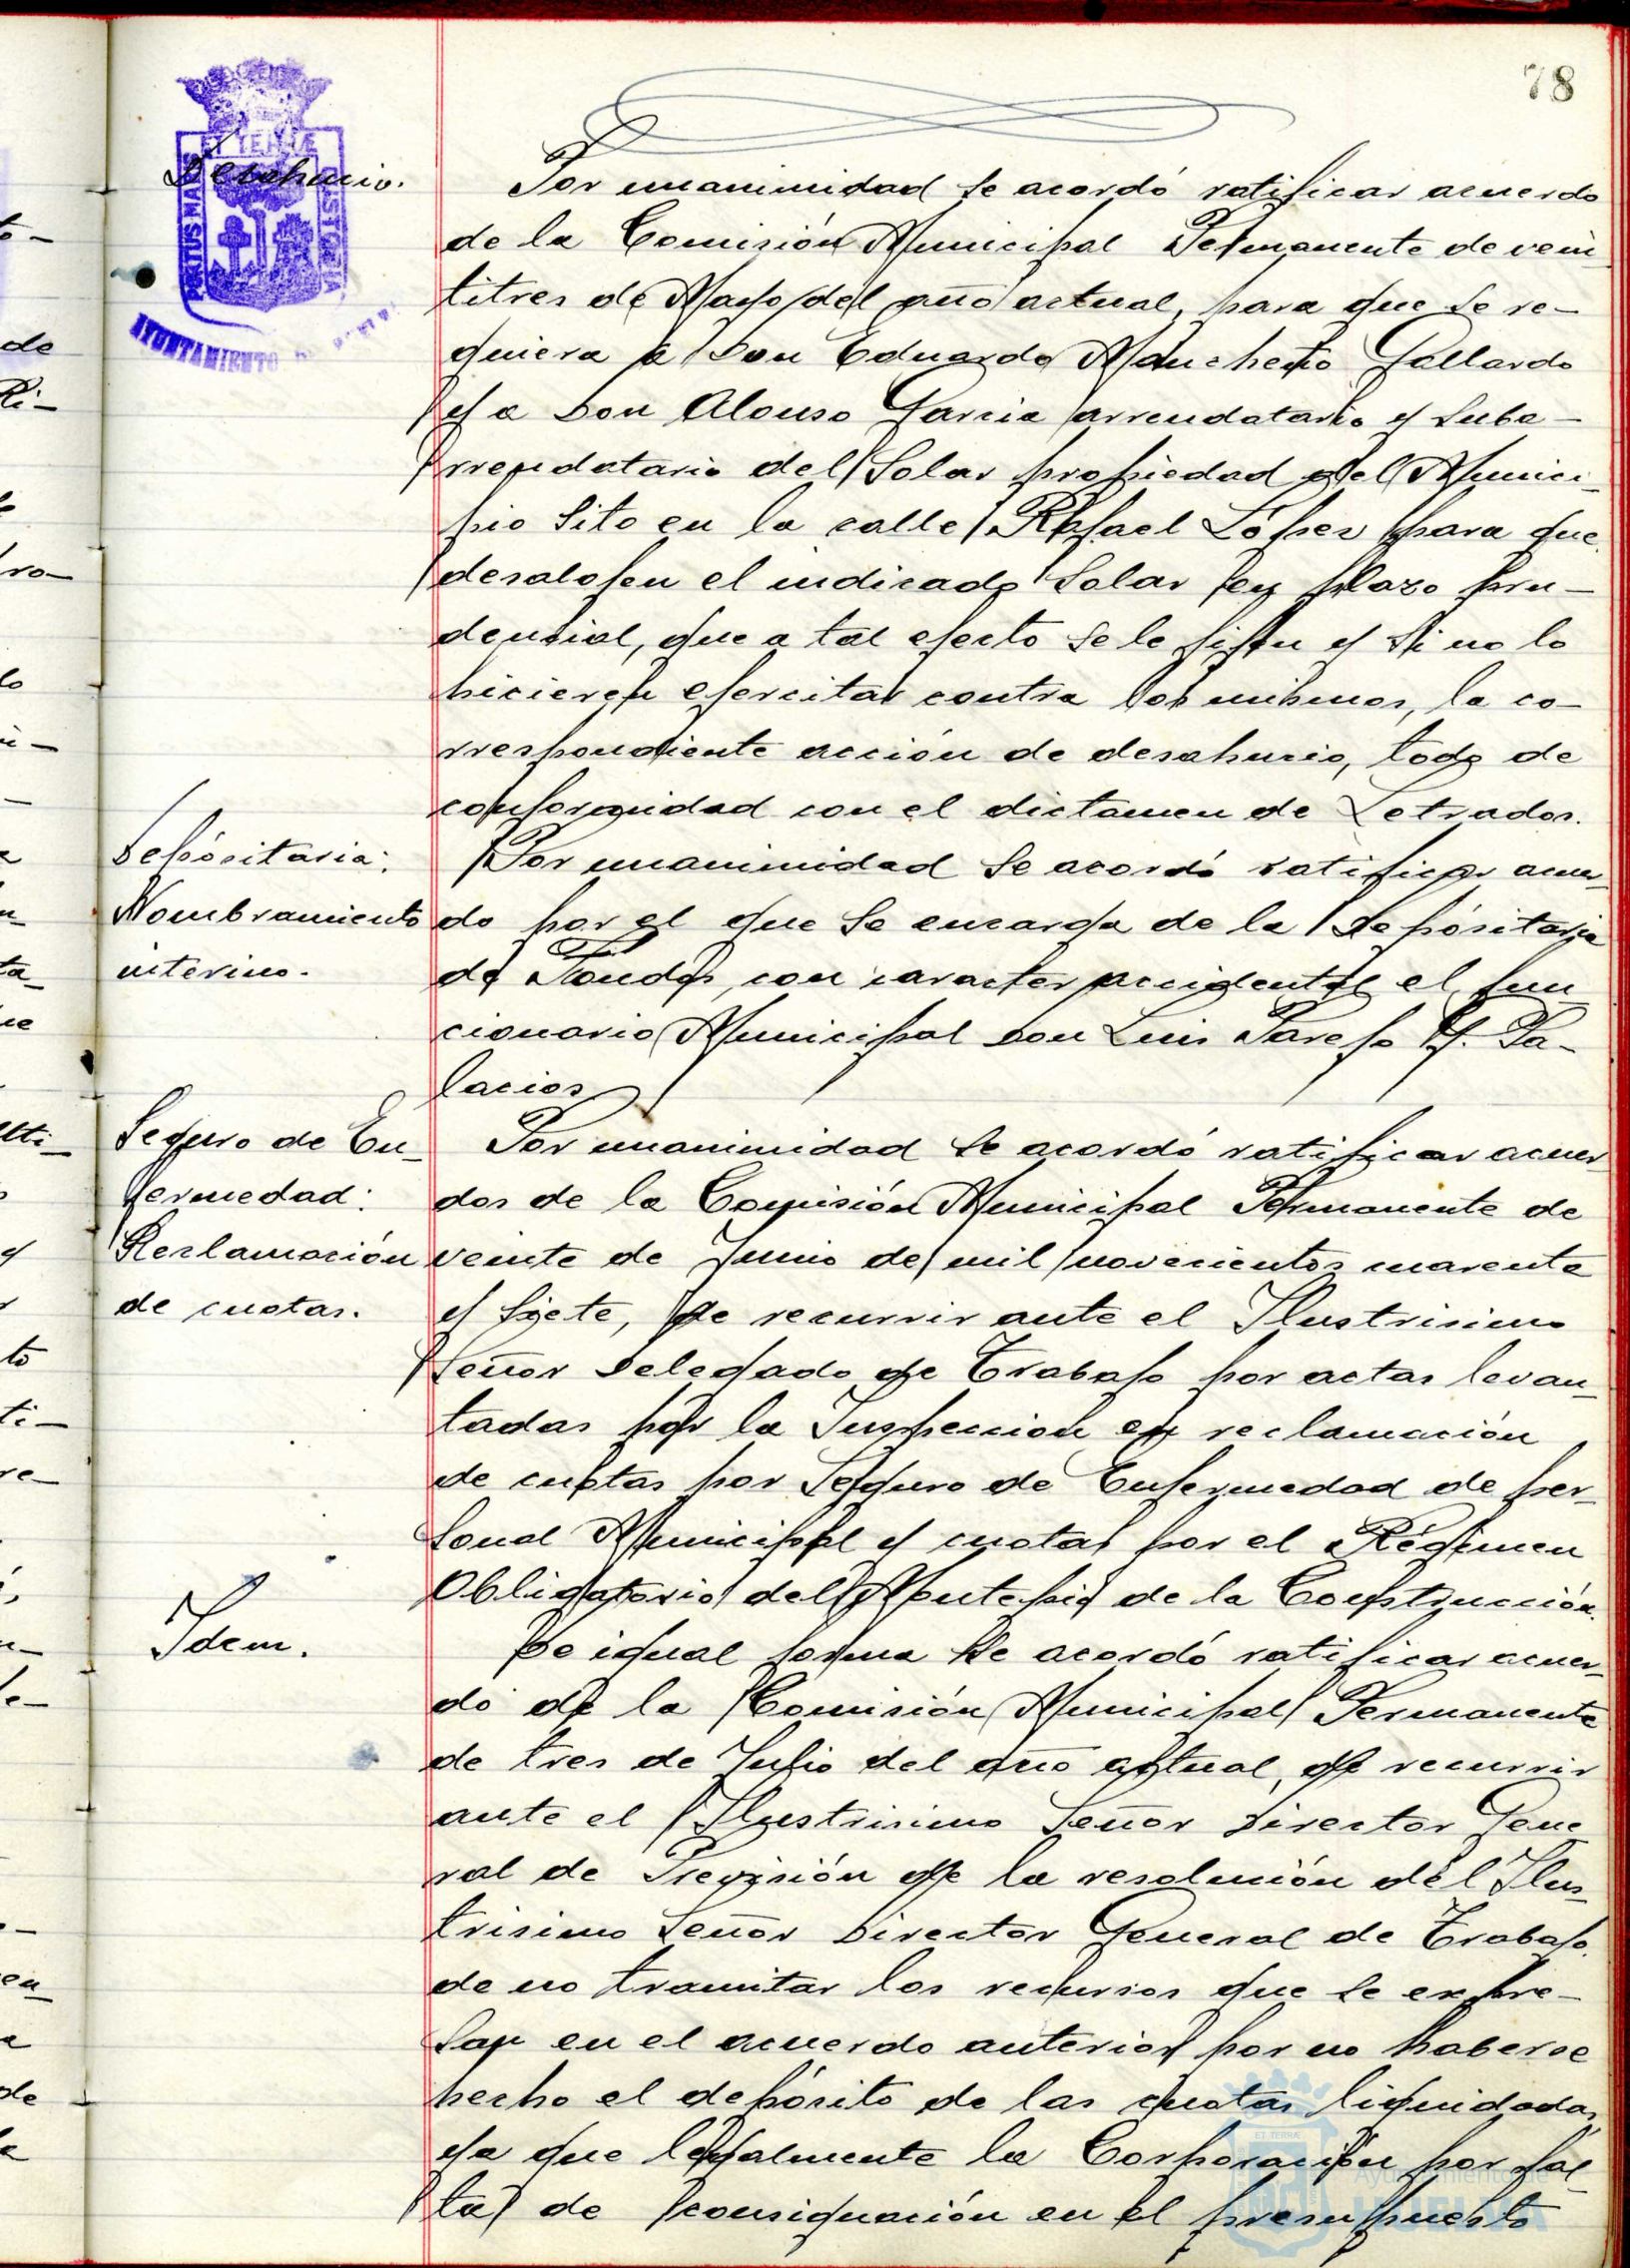 78
Desahucio.
PORTUS MARIS ET TERRAE CUSTODIA
AYUNTAMIENTO
Por unanimidad se acordó ratificar acuerdo
de la Comisión Municipal Permanente de vein
titres de Mayo del año actual, para que se re-
quiera a Don Eduardo Mancheño Gallardo
y a Don Alonso Garcia arrendatario y suba-
rrendatario del Solar propiedad del Munici-
pio Sito en la calle Rafael López para que
desalojen el indicado Solar en plazo pru-
dencial, que a tal efecto se le fijen y si no lo
hicieren ejercitar contra los mismos, la co-
rrespondiente acción de desahucio, todo de
conformidad con el dictamen de Letrados.
Depósitaria:
Nombramiento
interino.
Por unanimidad se acordó ratificar acuer-
do por el que se encarga de la Depósitaria
de Fondos, con caracter accidental el fun
cionario Municipal Don Luis Parejo y. Pa-
lacios
Seguro de En-
fermedad:
Reclamación
de cuotas.
Por unanimidad se acordó ratificar acuer
dos de la Comisión Municipal Permanente de
veinte de Junio de mil novecientos cuarenta
y siete, de recurrir ante el Ilustrisimo
Señor Delegado de Trabajo por actas levan-
tadas por la Inspección en reclamación
de cuotas por Seguro de Enfermedad de per-
sonal Municipal y cuotas por el Régimen
Obligatorio del Montepio de la Construcción.
Idem.
De igual forma se acordó ratificar acuer-
do de la Comisión Municipal Permanente
de tres de Julio del año actual, de recurrir
ante el Ilustrisimo Señor Director Gene
ral de Previsión de la resolución del Ilus-
trisimo Señor Director General de Trabajo.
de no tramitar los recursos que se expre-
san en el acuerdo anterior por no haberse
hecho el depósito de las cuotas liquidadas
ya que legalmente la Corporación por fal-
ta de consignación en el presupuesto